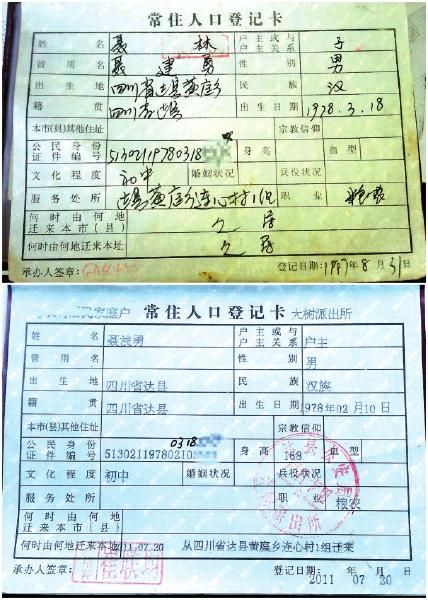 常住人口登记卡
姓名 聂林 户主或与户主关系 子
曾用名 聂建勇 性别 男
出生地 四川省达县黄庭乡 民族 汉
籍贯 四川省达县 出生日期 1978.3.18
本市(县)其他住址 宗教信仰
公民身份证件编号 51302119780318 身高 血型
文化程度 初中 婚姻状况 兵役状况
服务处所 达县黄庭乡连心村1组 职业 粮农
何时由何地迁来本市(县) 久居
何时由何地迁来本址 久居
承办人签章: 登记日期:1997年8月31日
家庭户 常住人口登记卡 大树派出所
姓名 聂洪勇 户主或与户主关系 户主
曾用名 性别 男
出生地 四川省达县 民族 汉族
籍贯 四川省达县 出生日期 1978年02月10日
本市(县)其他住址 宗教信仰
0318
公民身份证件编号 51302119780210 身高 168 血型
文化程度 初中 婚姻状况 兵役状况
服务处所 职业 粮农
何时由何地迁来本市(县)
何时由何地迁来本址 2011.07.20 从四川省达县黄庭乡连心村1组迁来
承办人签章: 登记日期: 年 月 日
2011 07 20